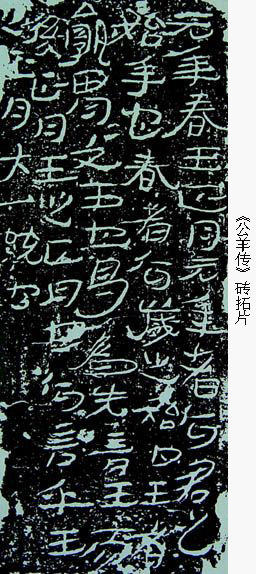 元年春王正月元年者何君之
始年也春者何歲之始也王者
孰胃〻文王也曷為先言王而
後正月王之正月也何言乎王
之正月大一統也
《公羊传》砖拓片